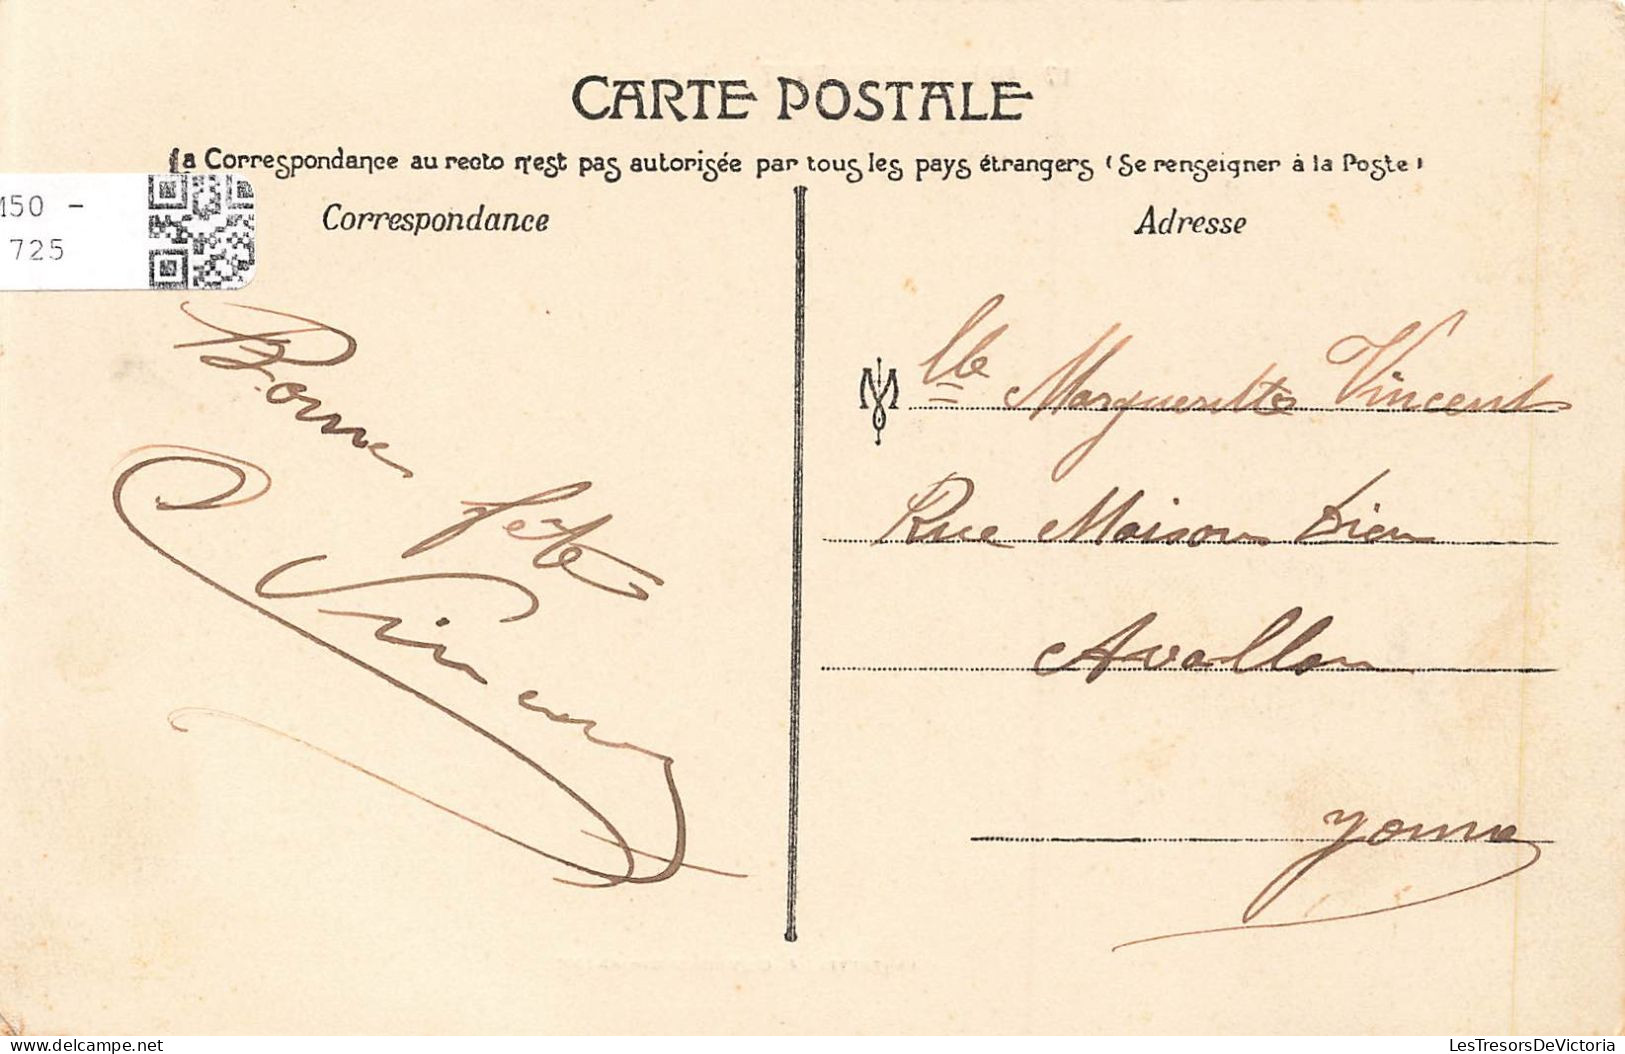 CARTE POSTALE
La Correspondance au recto n'est pas autorisée par tous les pays étrangers (Se renseigner à la Poste)
150 -
725
Correspondance
Adresse
Bonne
fête
Vincent
Mlle Marguerite Vincent
Rue Maison Dieu
Avallon
Yonne
delcampe.net
LesTresorsDeVictoria